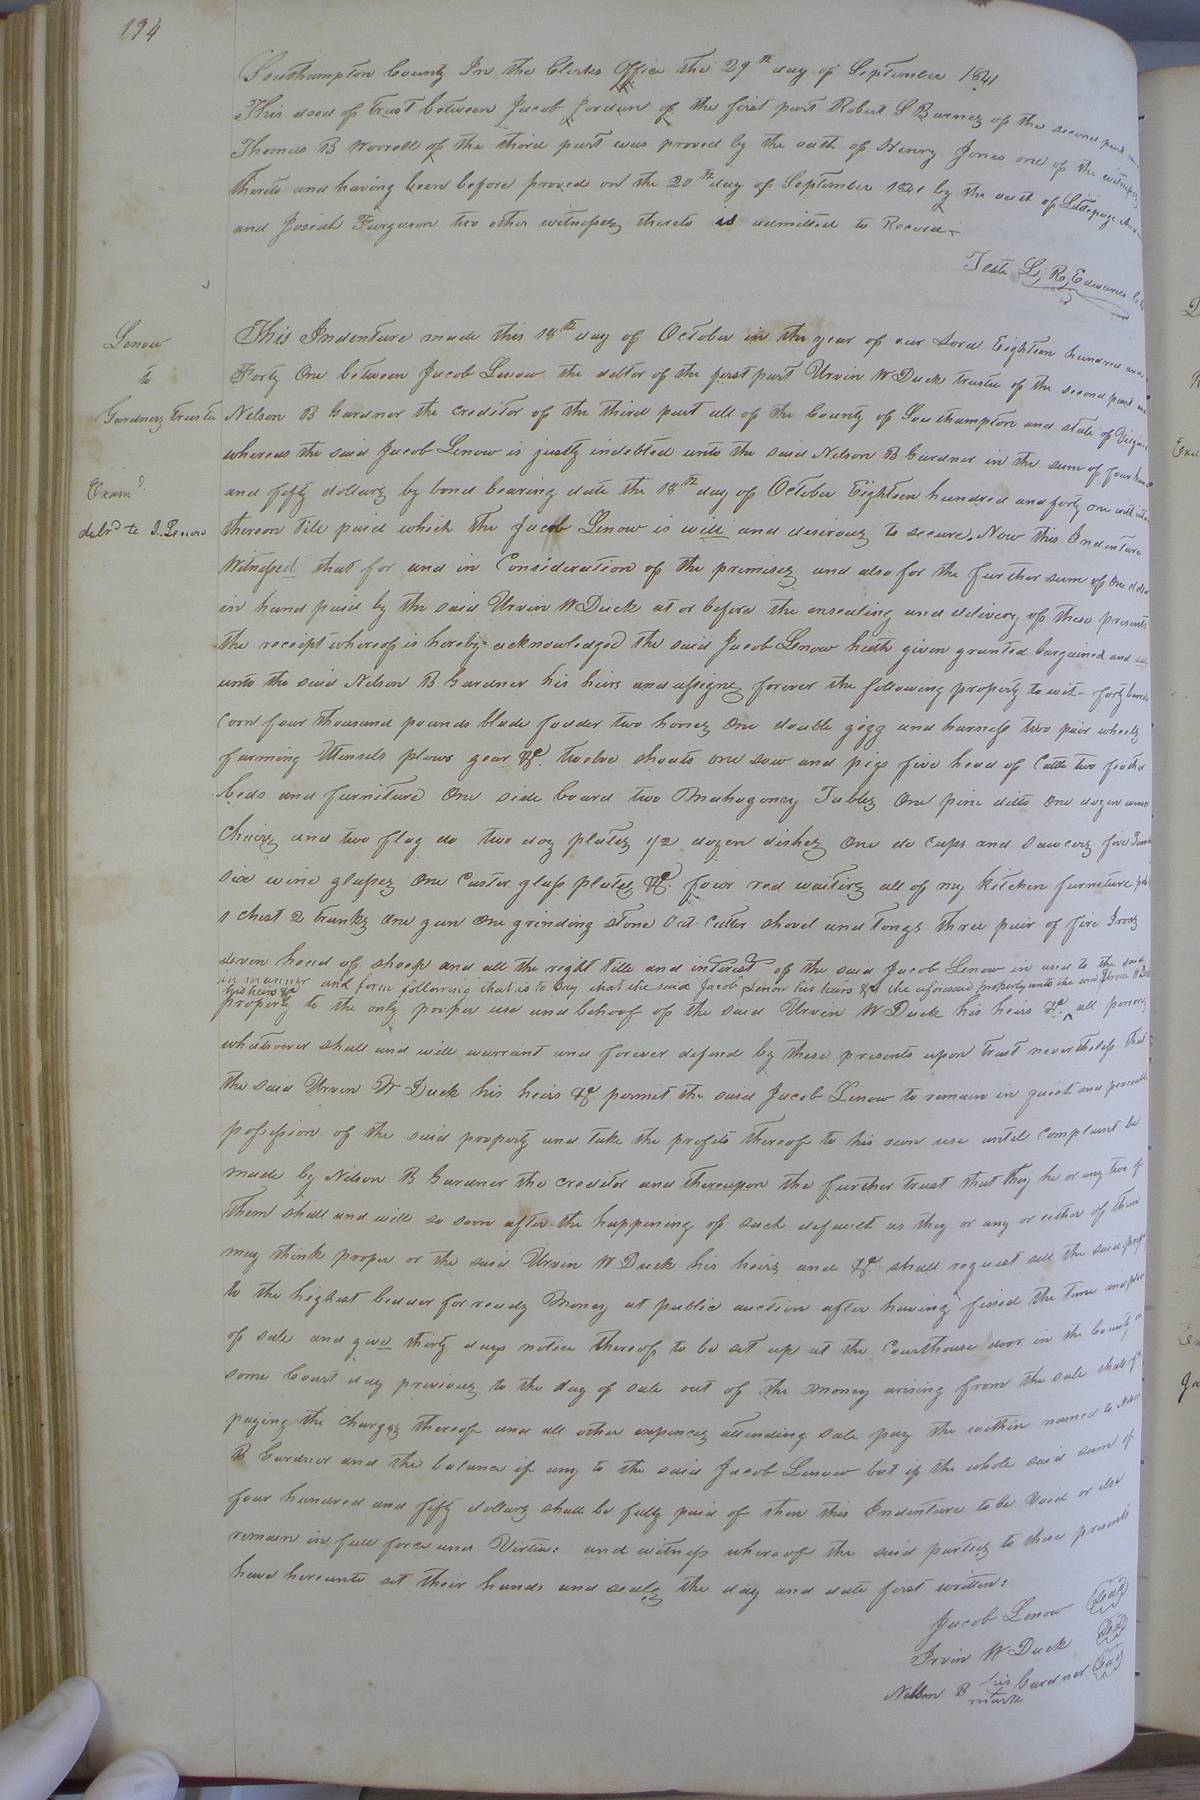 194
Southampton County In the Clerks Office the 29th day of September 1841
This deed of trust between Jacob Jordan of the first part Robert S Barnes of the second part
Thomas B Worrell of the third part was proved by the oath of Henry Jones one of the witnesses
thereto and having been before proved on the 20th day of September 1841 by the oath of
and Josiah Furguson two other witnesses thereto is admitted to Record.
Teste L. R. Edwards
Lenow
to
Gardners Trustee
Examd.
delvd to J. Lenow
This Indenture made this 18th day of October in the year of our Lord Eighteen hundred and
Forty One between Jacob Lenow the debtor of the first part Urvin W Duck trustee of the second part
Nelson B Gardner the creditor of the third part all of the County of Southampton and state of
whereas the said Jacob Lenow is justly indebted unto the said Nelson B Gardner in the sum of four
and fifty dollars by bond bearing date the 18th day of October Eighteen hundred and forty one with
thereon till paid which the Jacob Lenow is will and desirous to secure. Now this Indenture
Witnessed that for and in Consideration of the premises and also for the further sum of one
in hand paid by the said Urvin W Duck at or before the ensealing and delivery of these presents
the receipt whereof is hereby acknowledged the said Jacob Lenow hath given granted bargained and
unto the said Nelson B Gardner his heirs and assigns forever the following property to wit- forty
Corn four thousand pounds blade fodder two horses One double gigg and harness two pair wheels
farming Utensels plows gear &c. twelve shoats one sow and pigs five head of Cattle two feather
beds and furniture One side board two Mahogoney Tables One pine ditto One dozen
Chairs and two flag do two doz plates 1/2 dozen dishes One do Cups and saucers five
six wine glasses One Castor glass plates &c. four red waiters all of my kitchen furniture
1 chest 2 trunks One gun One grinding stone Cutter shovel and tongs three pair of fire Irons
seven head of sheep and all the right title and interest of the said Jacob Lenow in and to the said
in manner and form following that is to say that the said Jacob Lenow his heirs &c the aforesaid property unto the said Urvin W Duck
his heirs &c
property to the only proper use and behoof of the said Urvin W Duck his heirs &c. all persons
whatsoever shall and will warrant and forever defend by these presents upon trust nevertheless that
the said Urvin W Duck his heirs &c permit the said Jacob Lenow to remain in quiet and peaceable
possession of the said property and take the profits thereof to his own use until complaint be
made by Nelson B Gardner the creditor and thereupon the further trust that they he or any two of
them shall and will so soon after the happening of such default as they or any or either of them
may think proper or the said Urvin W Duck his heirs and &c shall request sell the said
to the highest bedder for ready Money at public auction after having fixed the time and place
of sale and give thirty days notice thereof to be set up at the Courthouse door in the County
some Court day previous to the day of sale out of the money arising from the sale shall
paying the charges thereof and all other expences attending sale pay the within named to
B Gardner and the balance if any to the said Jacob Lenow but if the whole said sum of
four hundred and fifty dollars shall be fully paid of then this Indenture to be Void or else
remain in full force and Virtue: and witness whereof the said parties to these presents
have hereunto set their hands and seals the day and date first written:
Jacob Lenow Seal
Irvin W Duck Seal
Nelson B his mark Gardner Seal